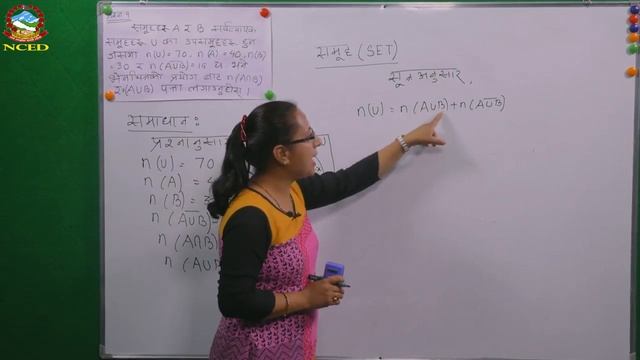 NCED
समूहहरू A र B सर्वव्यापक
समूहहरू U का उपसमूहहरू हुन्
जसमा n(U) = 70, n(A) = 40, n(B)
= 30 र n(A∪B) = 15 छ भने
प्रयोग बाट n(A∩B)
र n(A∪B) पत्ता लगाउनुहोस् ।
समाधान :
प्रश्नानुसार
n(U) = 70
n(A) =
n(B) =
n(A̅∪̅B̅)
n(A∩B)
n(A∪B)
समूह (SET)
सूत्र अनुसार,
n(U) = n(A∪B) + n(A̅∪̅B̅)